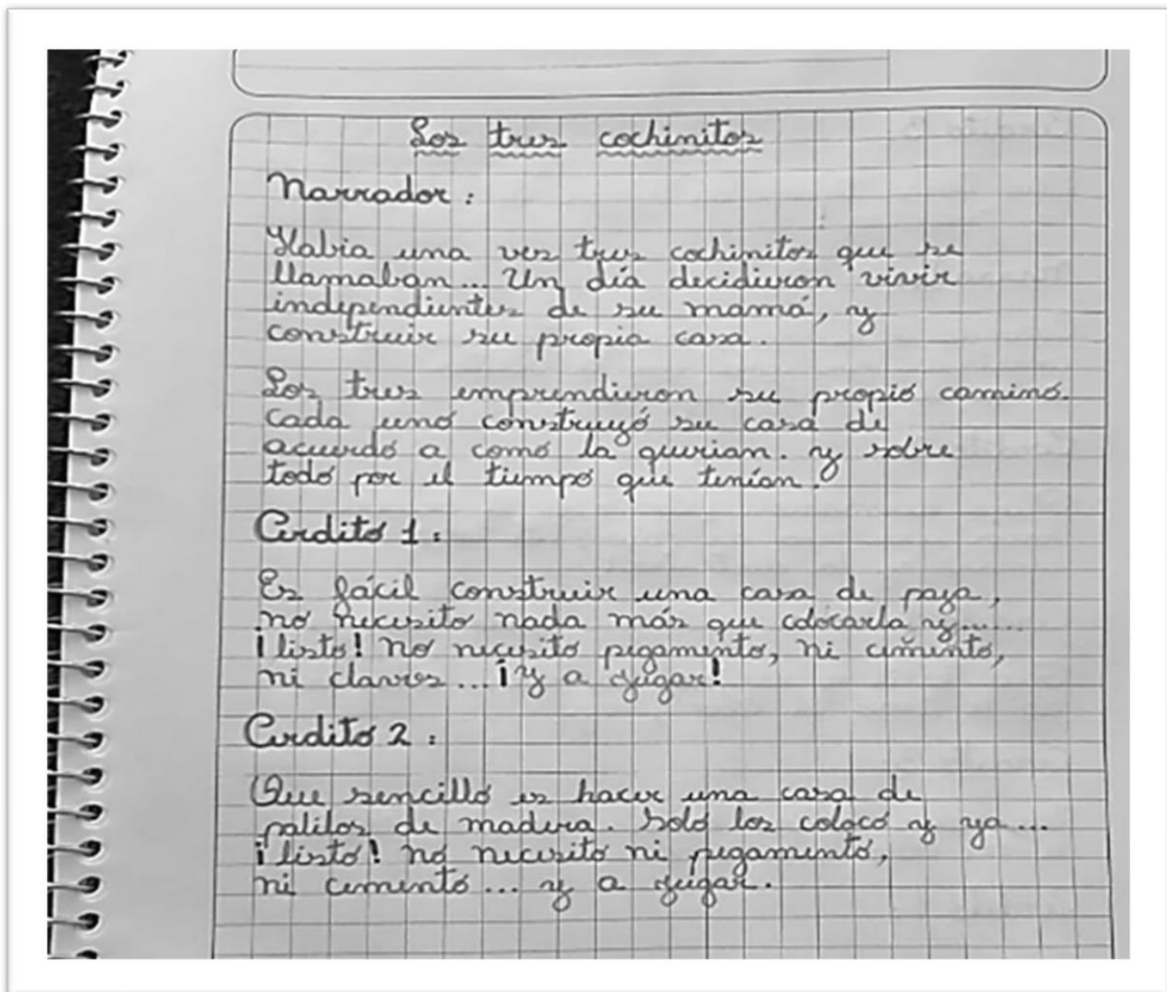 Los tres cochinitos
Narrador:
Habia una vez tres cochinitos que se
llamaban... Un día decidieron vivir
independientes de su mamá, y
construir su propia casa.
Los tres emprendieron su propio camino.
Cada uno construyó su casa de
acuerdo a como la querian. y sobre
todo por el tiempo que tenían.
Cerdito 1:
Es fácil construir una casa de paja,
no necesito nada más que colocarla y......
¡listo! no necesito pegamento, ni cemento,
ni clavos... ¡y a jugar!
Cerdito 2:
Que sencillo es hacer una casa de
palitos de madera. solo los coloco y ya...
¡listo! no necesito ni pegamento,
ni cemento... y a jugar.